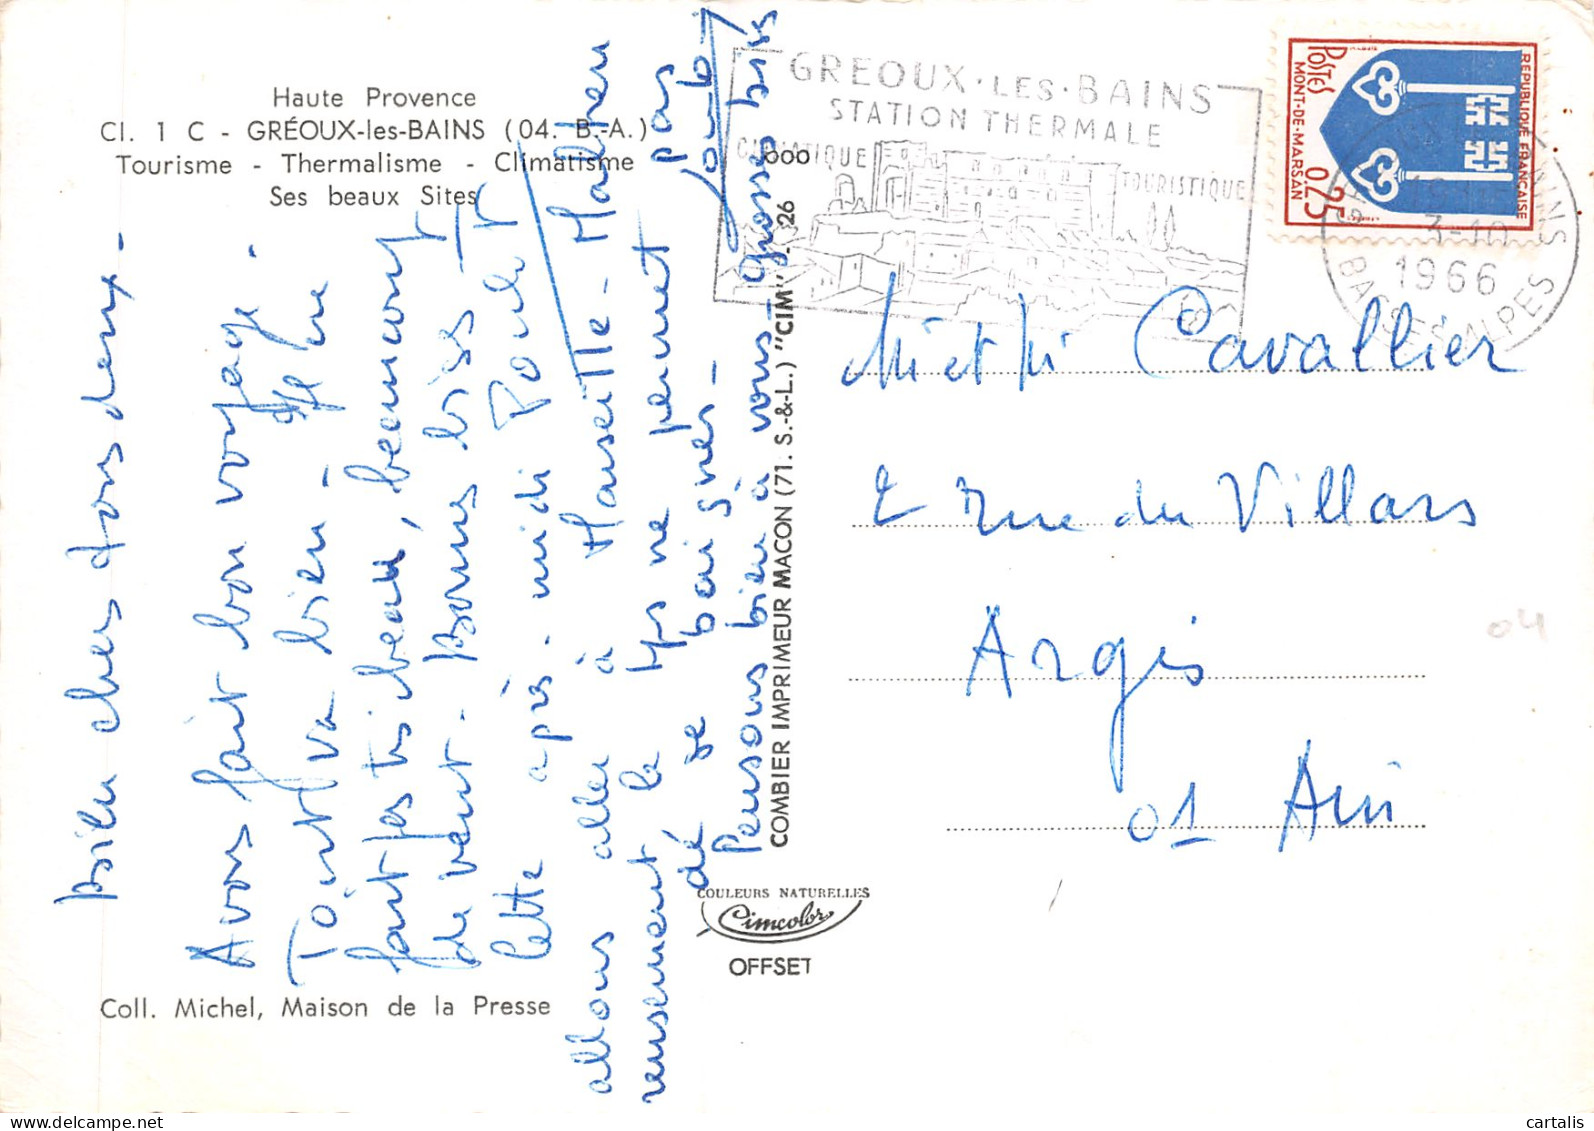 Haute Provence
Cl. 1 C - GRÉOUX-les-BAINS (04. B.-A.)
Tourisme - Thermalisme - Climatisme
Ses beaux Sites
bien chers tous deux -
Avons fait bon voyage -
Tout va bien -
fait très beau, beaucoup
de vent. bonus bises
Cette après-midi
allons aller à Marseille - Mathieu
le tps ne permet pas
de se baigner -
Pensons bien à vous - grosses bises
Coll. Michel, Maison de la Presse
COMBIER IMPRIMEUR MACON (71. S.-&-L.) "CIM"
26
COULEURS NATURELLES
Cimcolor
OFFSET
GREOUX·LES·BAINS
STATION THERMALE
CLIMATIQUE
TOURISTIQUE
REPUBLIQUE FRANÇAISE
POSTES
MONT-DE-MARSAN
0,25
3-10
1966
BASSES ALPES
Mr et Me Cavallier
2 rue du Villars
Argis
01 Ain
04
cartalis
www.delcampe.net